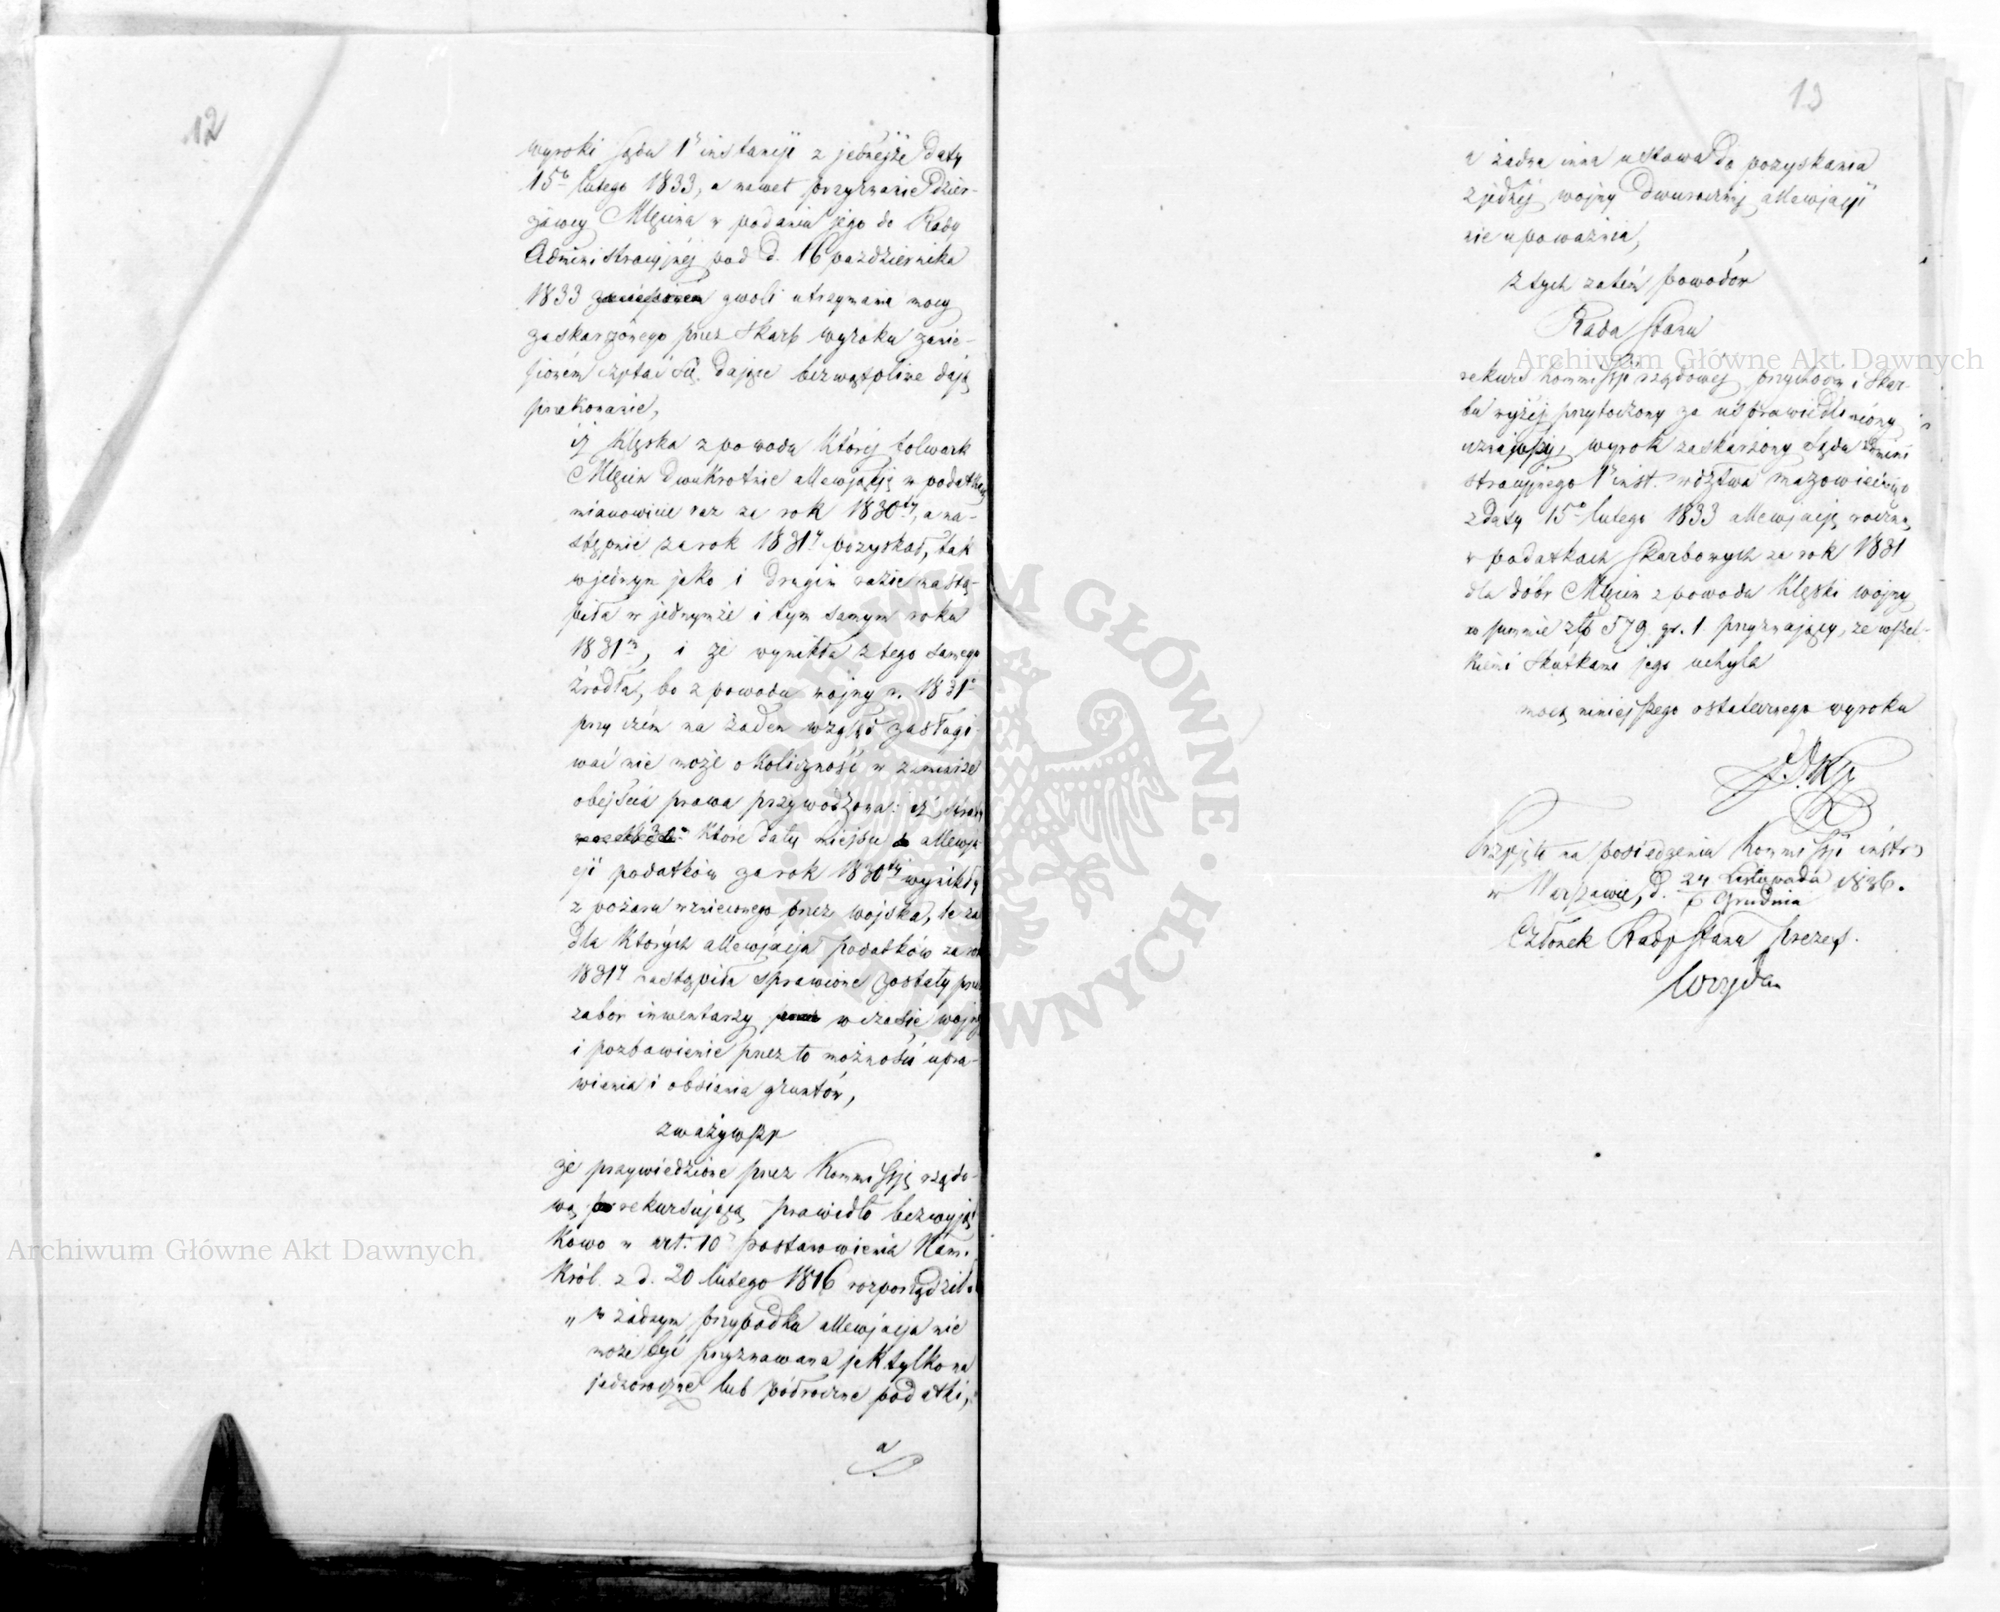 12
wyroki Sądu 1ej instancji z jednejże daty
15o lutego 1833, a nawet przyznanie dzier-
żawcy Mlęcina w podaniu jego do Rady
Administracyjnéj pod d. 16 października
1833 gwoli utrzymania mocy
zaskarżonego przez Skarb wyroku zanie-
sioném czytać się dające bezwątpliwe dają
przekonanie,
iż klęska z powodu któréj folwark
Mlęcin dwukrotnie allewjację w podatkach
mianowicie raz za rok 1830ty, a na-
stępnie za rok 1831y pozyskał, tak
w jednym jako i drugim razie nastą-
piła w jednymże i tym samym roku
1831m, i że wynikła z tego samego
źródła, bo z powodu wojny r. 1831o
przy czém na żaden wzgląd zasługi-
wać nie może okoliczność w zamiarze
obejścia prawa przywodzona: iż straty
które dały miejsce allewja-
cji podatków za rok 1830ty wynikły
z pożaru wznieconego przez wojska, te zaś
dla których allewjacja podatków za rok
1831y nastąpiła sprawione zostały przez
zabór inwentarzy w czasie wojny
i pozbawienie przez to możności upra-
wienia i obsiania gruntów,
zważywszy
że przywiedzione przez Kommissję rządo-
wą rekursującą prawidło bezwyjąt-
kowo w art. 10 postanowienia Nam.
Król. z d. 20 lutego 1816 rozporządziło
„w żadnym przypadku allewjacja nie
może być przyznawana jak tylko na
jednoroczne lub półroczne podatki,
a
13
a żadna inna ustawa do pozyskania
z jednéj wojny dwurocznéj allewjacji
nie upoważnia,
z tych zatém powodów
Rada Stanu
rekurs Kommissji rządowéj przychodów i Skar-
bu wyżéj przytoczony za usprawiedliwiony
uznając, wyrok zaskarżony Sądu admini-
stracyjnego 1ej inst. wdztwa mazowieckiego
z daty 15o lutego 1833 allewjację roczną
w podatkach skarbowych za rok 1831
dla dóbr Mlęcin z powodu klęski wojny
w summie złp 579 gr. 1 przyznający, ze wszel-
kiémi skutkami jego uchyla
mocą niniejszego ostatecznego wyroku
Przyjęto na posiedzeniu Kommissji instr.
w Warszawie, d. 24 Listopada 1836.
6 Grudnia
Członek Rady Stanu Prezes.
Archiwum Główne Akt Dawnych
Archiwum Główne Akt Dawnych
ARCHIWUM GŁÓWNE · AKT DAWNYCH ·